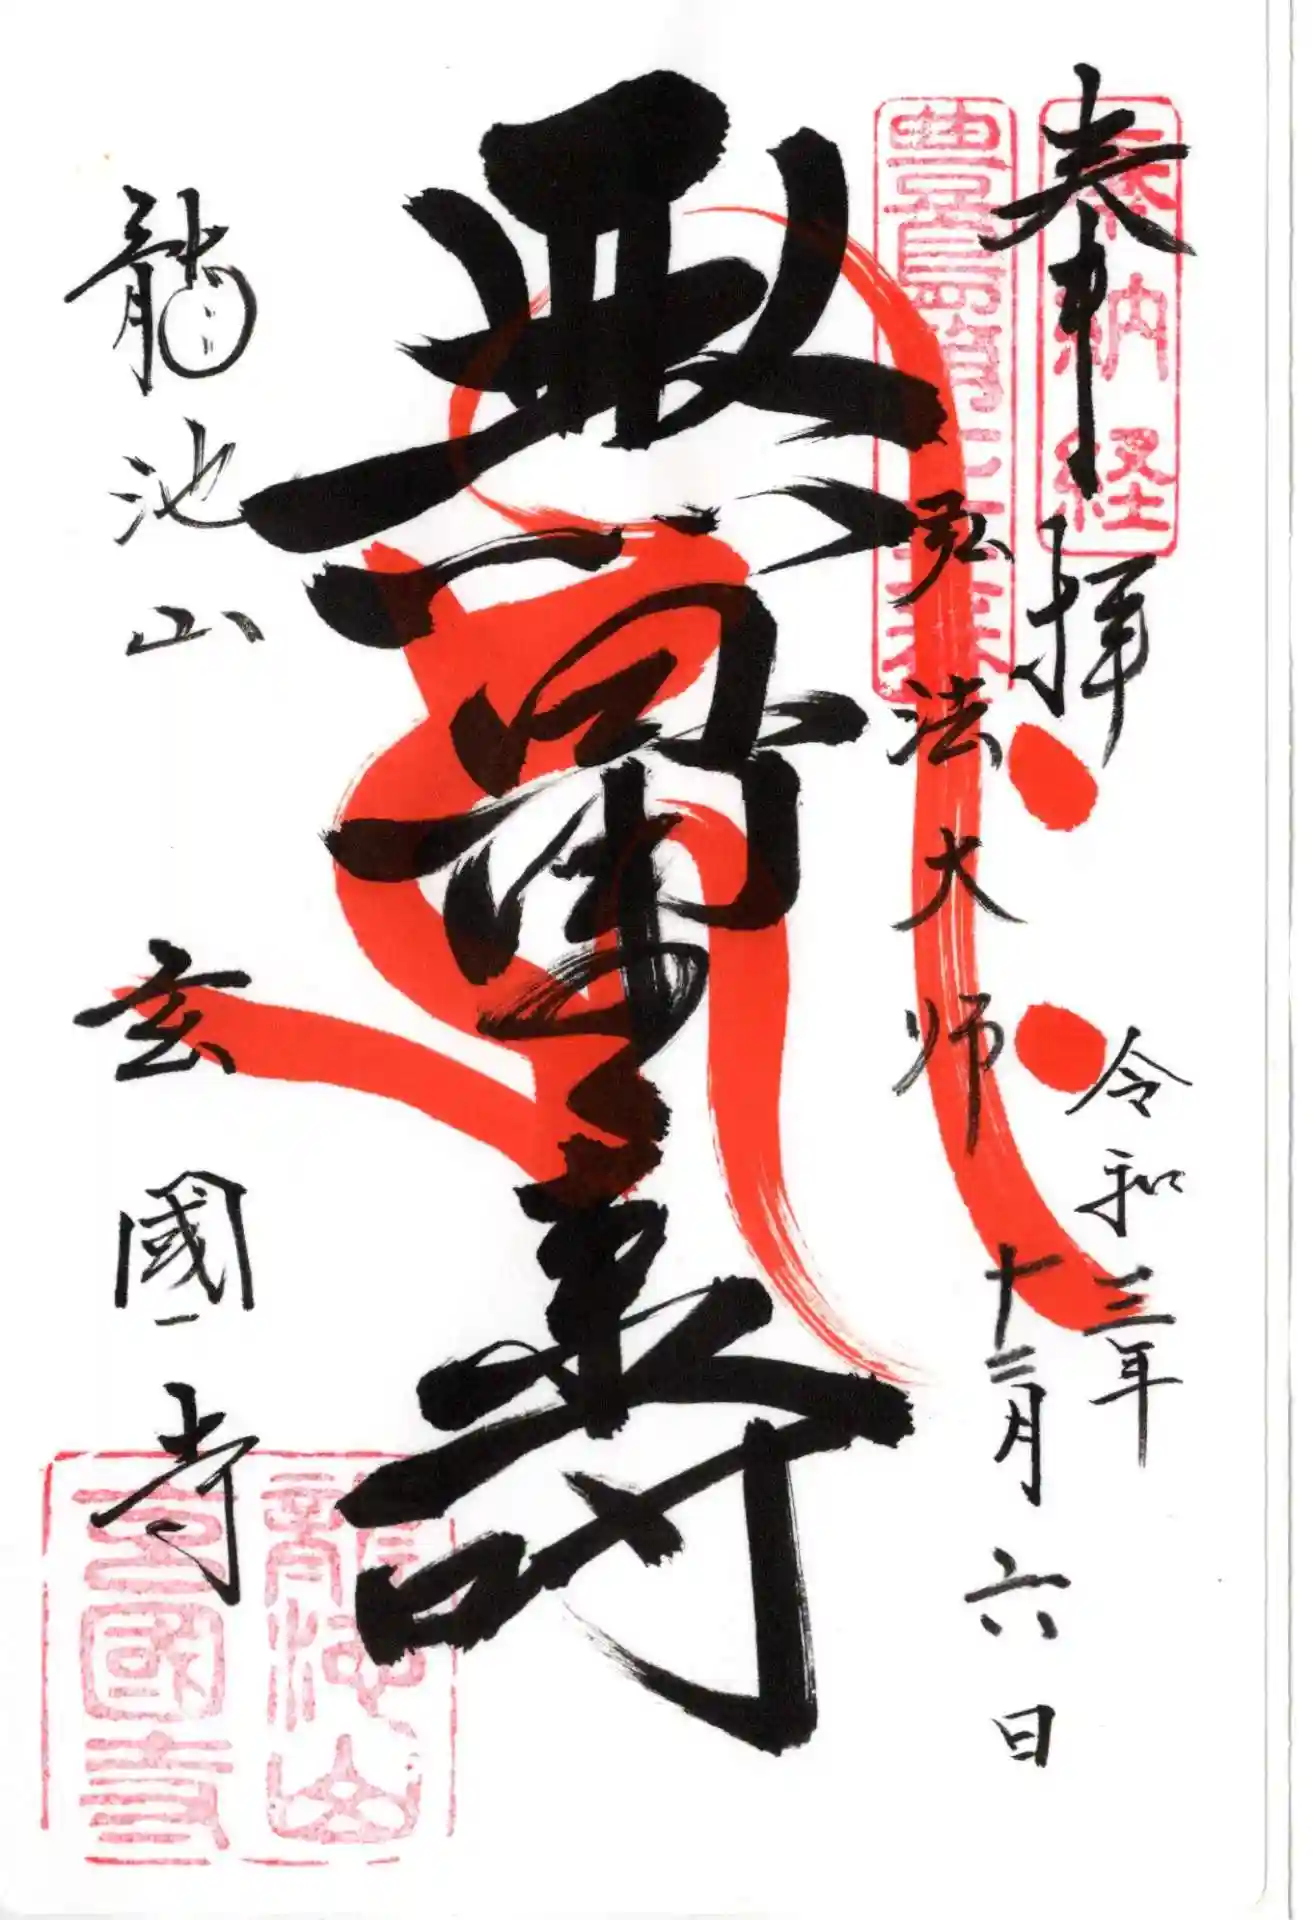 奉拝
奉納経
令和三年
十二月六日
弘法大師
無量寿
龍池山
玄國寺
龍池山
玄國寺